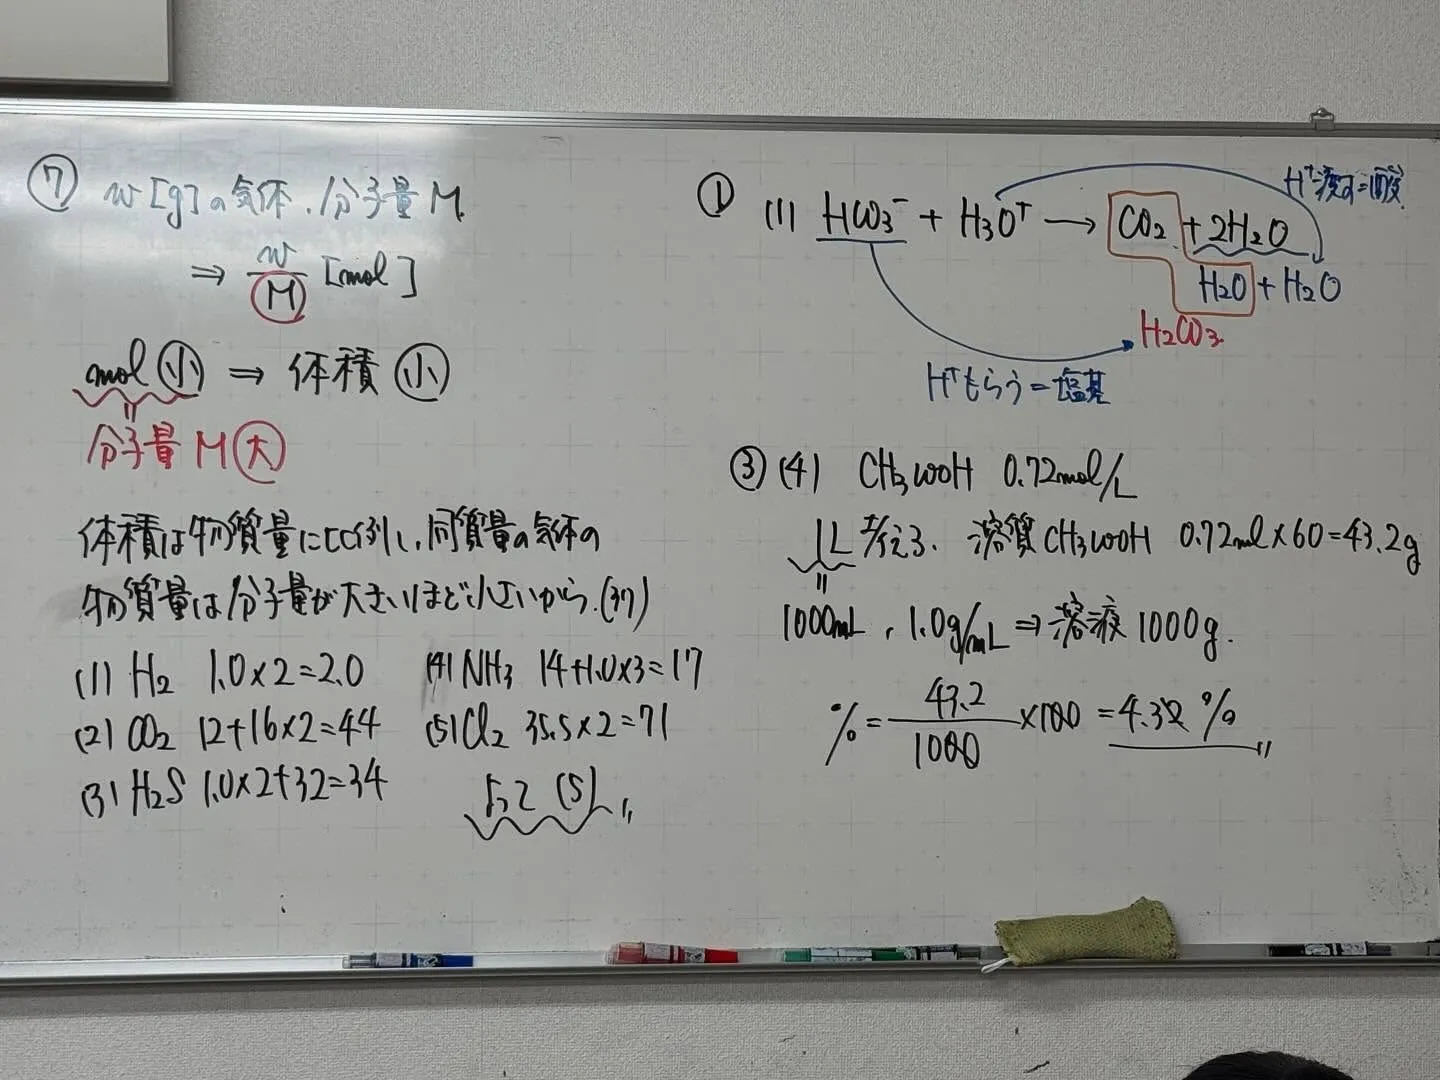 ⑦ w[g]の気体、分子量M.
⇒ w/M [mol]
mol 小 ⇒ 体積 小
〃
分子量M大
体積は物質量に比例し、同質量の気体の
物質量は分子量が大きいほど小さいから.(37)
(1) H2 1.0×2=2.0
(2) CO2 12+16×2=44
(3) H2S 1.0×2+32=34
(4) NH3 14+1.0×3=17
(5) Cl2 35.5×2=71
よって (5)〃
① (1) HCO3⁻ + H3O⁺ → CO2 + 2H2O
H⁺渡す=酸
H2O + H2O
H2CO3
H⁺もらう=塩基
③ (4) CH3COOH 0.72mol/L
1L考える. 溶質CH3COOH 0.72mol×60=43.2g
〃
1000mL, 1.0g/mL ⇒ 溶液1000g.
% = 43.2/1000 ×100 = 4.32 %〃